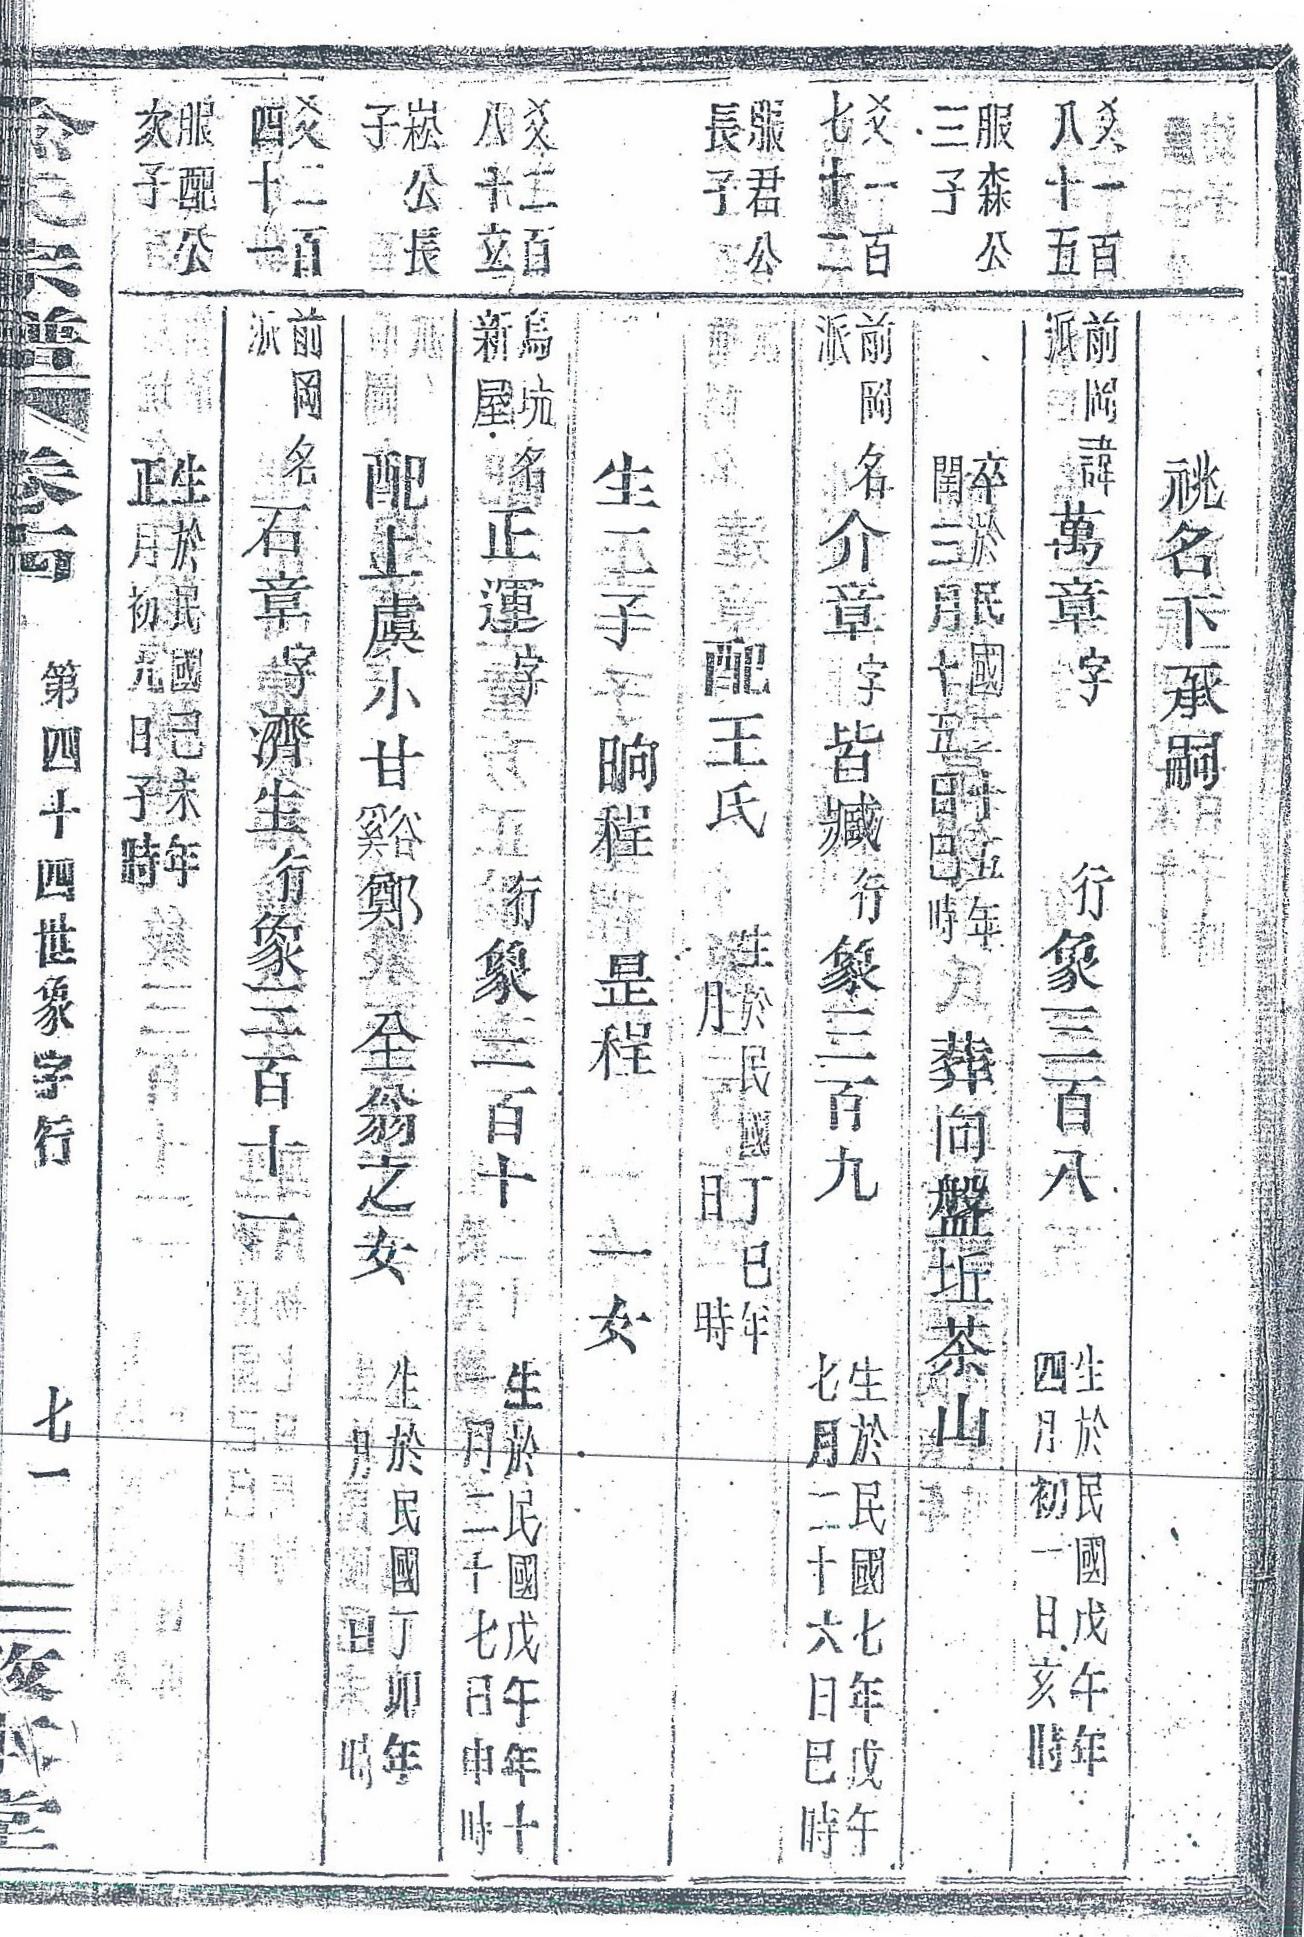 祧名下承嗣
爻一百八十五
前岡派
諱萬章字
行象三百八
生於民國戊午年四月初一日亥時
服森公三子
卒於民國二十五年閏三月十五日巳時
葬向盤坵茶山
爻一百七十二
前岡派
名介章字皆臧行象三百九
生於民國七年戊午七月二十六日巳時
服君公長子
配王氏
生於民國丁巳年
月
日
時
生二子
晌程
昰程
一女
爻二百八十立
烏坑新屋
名正運字
行象三百十
生於民國戊午年十月二十七日申時
崧公長子
配上虞小甘谿鄭
全翁之女
生於民國丁卯年
月
日
時
爻二百四十一
前岡派
名石章字濟生行象三百十一
服配公次子
生於民國己未年正月初九日子時
宗譜
卷
第四十四世象字行
七一
堂